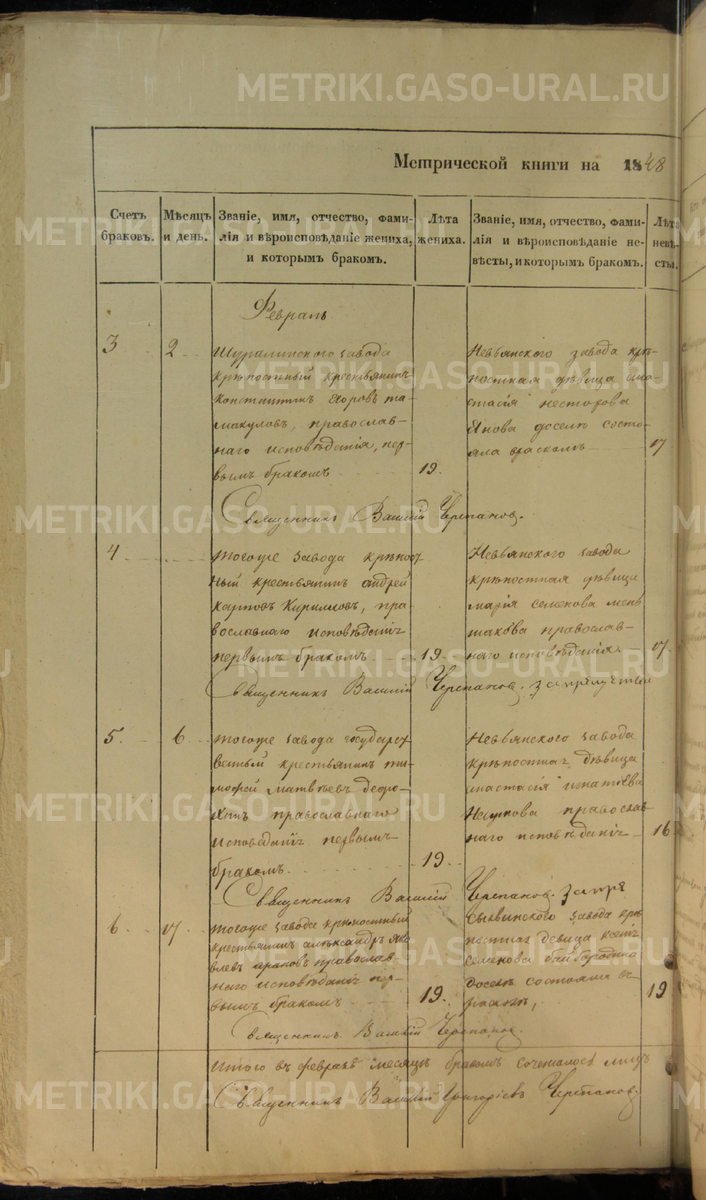 METRIKI.GASO-URAL.RU
Метрической книги на 1848
Счетъ браковъ.
Мѣсяцъ и день.
Званіе, имя, отчество, фами-
лія и вѣроисповѣданіе жениха,
и которымъ бракомъ.
Лѣта жениха.
Званіе, имя, отчество, фами-
лія и вѣроисповѣданіе не-
вѣсты, и которымъ бракомъ.
Лѣт
невѣ-
сты.
Февраль
3 2
Шуралинского завода
крѣпостный крестьянинъ
константинъ
макуловъ, православ-
наго исповѣданія, пер-
вымъ бракомъ 19.
Невьянского завода крѣ-
постная дѣвица ана-
стасія нестерова
Янова доселѣ состо-
яла 17
Священникъ Василій Черепановъ.
4
тогоже завода крѣпост
ный крестьянинъ андрей
карповъ Кириловъ, пра-
вославнаго исповѣданія
первымъ бракомъ 19
Невьянского завода
крѣпостная дѣвица
марія семенова мень
шакова православ-
наго исповѣданія. 17.
Священникъ Василій Черепановъ.
5. 6
тогоже завода государс
веный крестьянинъ ти-
мофей матвѣевъ
православнаго
исповеданія первымъ
бракомъ. 19.
Невьянского завода
крѣпостная дѣвица
анастасія игнатьева
православ
наго исповѣданія 16
Священникъ Василій Черепановъ.
6 17
тогоже завода крѣпостный
крестьянинъ александръ яко
влевъ православ-
наго исповѣданія пер-
вымъ бракомъ 19.
завода крѣ
постная девица
семенова
доселѣ состояла въ
19
священникъ Василій Черепановъ.
Итого въ февралѣ месяцѣ бракомъ сочеталось лицъ
Священникъ Василій Григоріевъ Черепановъ.